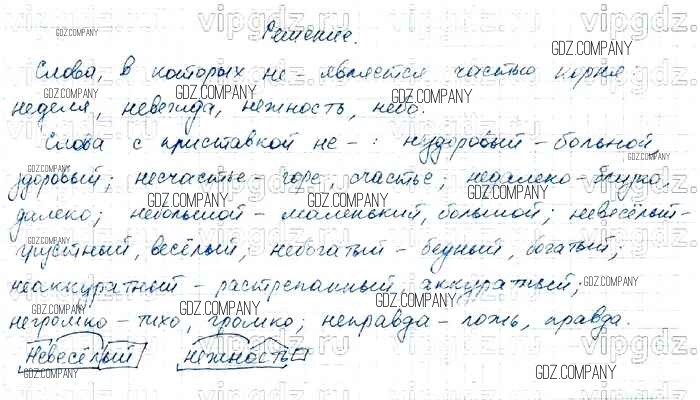 Решение.
Слова, в которых не - является частью корня:
неделя, невежда, нежность, небо.
Слова с приставкой не - : нездоровый - больной,
здоровый; несчастье - горе, счастье; недалеко - близко,
далеко; небольшой - маленький, большой; невесёлый -
грустный, весёлый; небогатый - бедный, богатый;
неаккуратный - растрепанный, аккуратный;
негромко - тихо, громко; неправда - ложь, правда.
невесёлый нежность
GDZ.COMPANY
vipgdz.ru